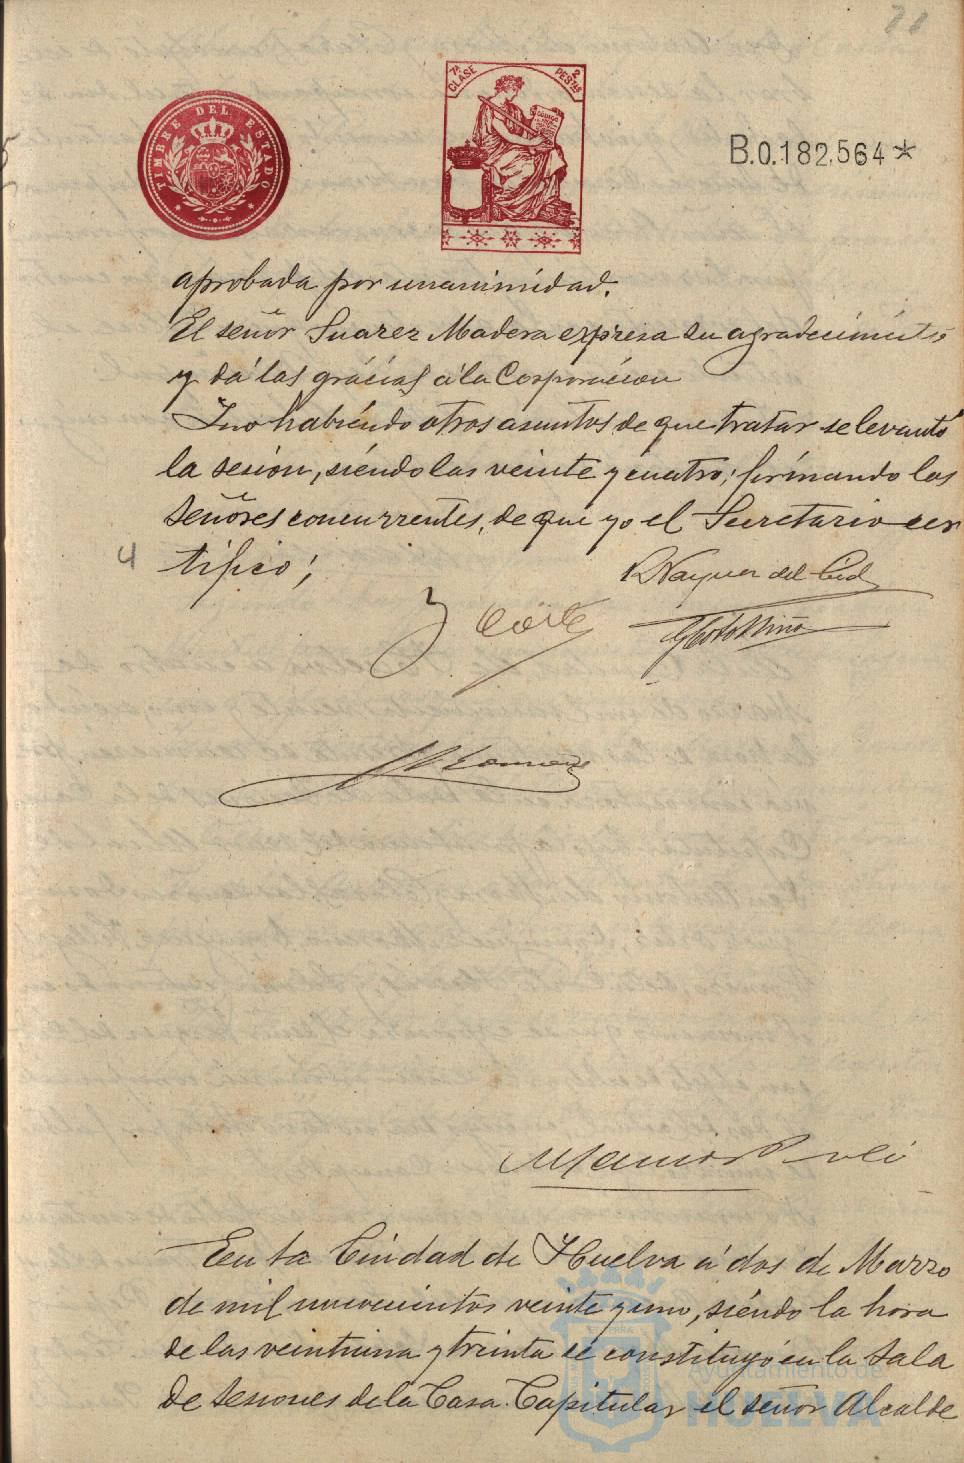 21
TIMBRE DEL ESTADO
7ª CLASE
2 PESTAS
CODIGO
B.0.182,564*
aprobada por unanimidad.
El señor Suarez Madera expresa su agradecimiento
y dá las grácias á la Corporácion
Y no habiéndo otros asuntos de que tratar se levantó
la sesion, siéndo las veinte y cuatro; firmando los
señores concurrentes, de que yo el Secretario cer
tifico;
4
Vazquez del Cid
y Corte
En la Ciudad de Huelva á dos de Marzo
de mil novecientos veinte y uno, siéndo la hora
de las veintiuna y treinta se constituyó en la Sala
de Sesiones de la Casa Capitular el señor Alcalde
Ayuntamiento de
HUELVA